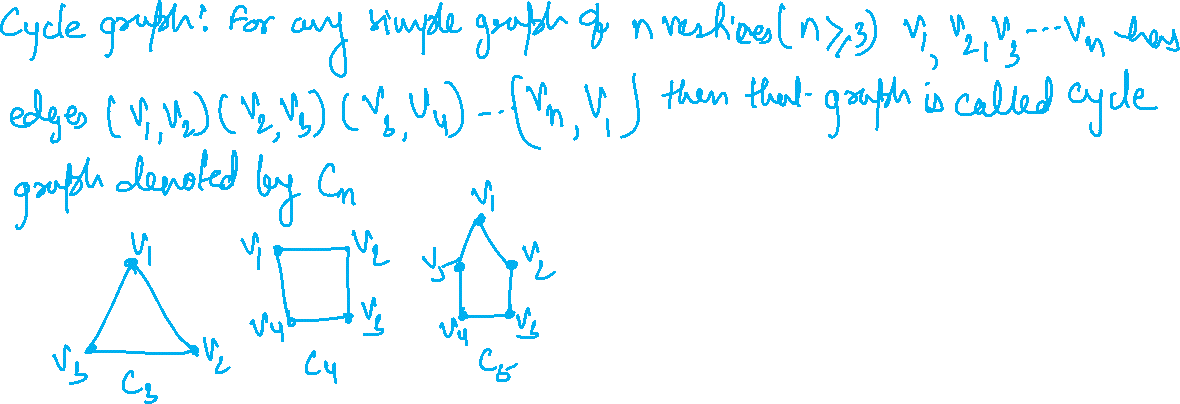 Cycle graph: For any simple graph of n vertices (n ≥ 3) V₁, V₂, V₃ ... Vₙ has
edges (V₁, V₂) (V₂, V₃) (V₃, V₄) -- (Vₙ, V₁) then that graph is called cycle
graph denoted by Cₙ
V₁ V₁ V₂ V₁
V₅ V₂
V₃ V₂ V₄ V₃ V₄ V₃
C₃ C₄ C₅